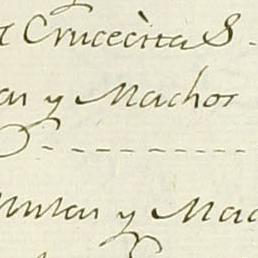 Crucecita S
y Machos
Mulas y Mac